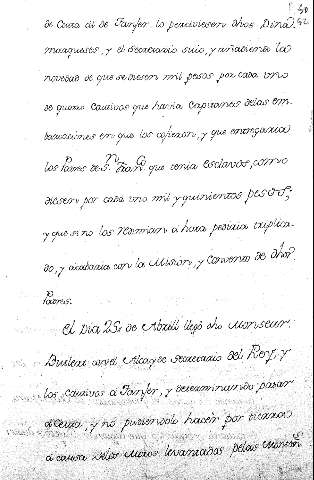 de Ceuta di de Tanfer lo perdiesen dhos Dina
marqueses, y el Secretario suio, y añadiendo la
novedad de que se diesen mil pesos por cada uno
de quatro Cautivos que havia Capitanes de las em
barcaciones en que los cojieron, y que entregaria
los Padres de Sn. Franco. que tenia esclavos, como
diesen por cada uno mil y quinientos pesos;
y que si no los tomaran a hora pediria duplica
do, y acabaria con la Mision, y Convento de dhos
Padres.
El Dia 25, de Abrill llegó dho Monseur
con el Alcayde Secretario del Rey, y
los cautivos a Tanfer, y determinando pasar
a Ceuta, y no pudiendolo hacer por tierra
a causa de los Moros levantados